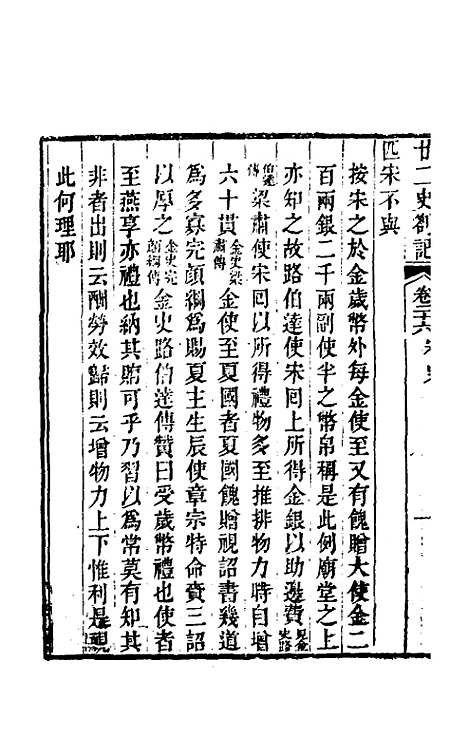 廿二史劄記 卷二十六 宋史
匹宋不與
按宋之於金歲幣外每金使至又有餽贈大使金二
百兩銀二千兩副使半之幣帛稱是此例廟堂之上
亦知之故路伯達使宋回上所得金銀以助邊費見金史路
伯達傳梁肅使宋回以所得禮物多至推排物力時自增
六十貫金史梁肅傳金使至夏國者夏國餽贈視詔書幾道
為多寡完顏綱為賜夏主生辰使章宗特命賫三詔
以厚之金史完顏綱傳金史路伯達傳贊曰受歲幣禮也使者
至燕享亦禮也納其賄可乎乃習以為常莫有知其
非者出則云酬勞效歸則云增物力上下惟利是視
此何理耶